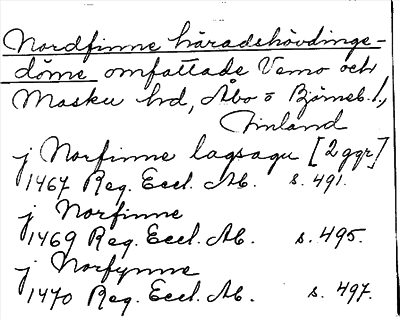 Nordfinne häradshövdinge-
döme omfattade Vemo och
Masku hd, Åbo o Björneb. l.,
Finland
j Norfinne lagsagu [2 ggr]
1467 Reg. Eccl. Ab. s. 491.
j Norfinne
1469 Reg. Eccl. Ab. s. 495.
j Norfynne
1470 Reg. Eccl. Ab. s. 497.